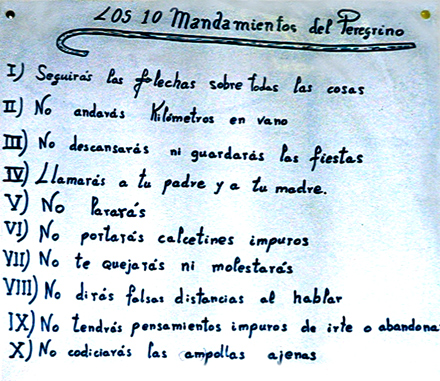 LOS 10 Mandamientos del Peregrino
I) Seguirás las flechas sobre todas las cosas
II) No andarás Kilómetros en vano
III) No descansarás ni guardarás las fiestas
IV) Llamarás a tu padre y a tu madre.
V) No Pararás
VI) No portarás calcetines impuros
VII) No te quejarás ni molestarás
VIII) No dirás falsas distancias al hablar
IX) No tendrás pensamientos impuros de irte o abandona
X) No codiciarás las ampollas ajenas